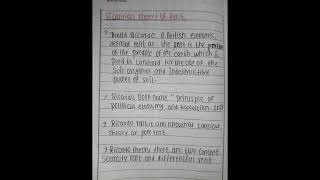 Ricardian theory of Rent.
David Ricardo, a British economic,
defined rent as the rent is the portion
of the produce of the earth which is
paid to Landlord for the use of the
Soil original and Indestructible
power of soil.
Ricardo Book name "Principle of
political economy and taxation
Ricardo rent is also known as classical
theory of
Ricardo theory there are two concept
Scarcity rent and differential rent